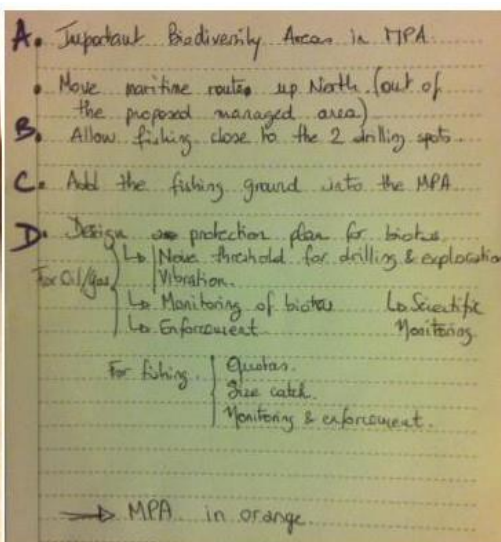 A. Important Biodiversity Areas in MPA
• Move maritime route up North (out of
the proposed managed area)
B. Allow fishing close to the 2 drilling spots.
C. Add the fishing ground into the MPA
D. Design protection plan for biotas
For Oil/gas
↳ Noise threshold for drilling & exploration
Vibration.
↳ Monitoring of biotas ↳ Scientific
↳ Enforcement Monitoring
For fishing
Quotas.
Size catch.
Monitoring & enforcement.
→ MPA in orange.